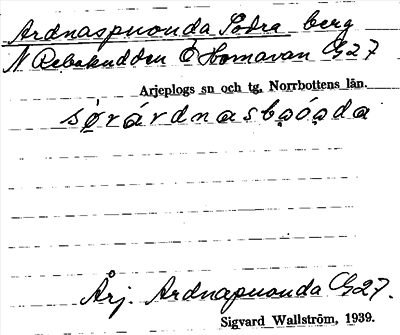 Ardnaspuonda Södra berg
N Rebakudden Ö Hornavan G27
Arjeplogs sn och tg. Norrbottens län.
sørárdnasbǫóǫda
Årj. Ardnapuonda G27.
Sigvard Wallström, 1939.